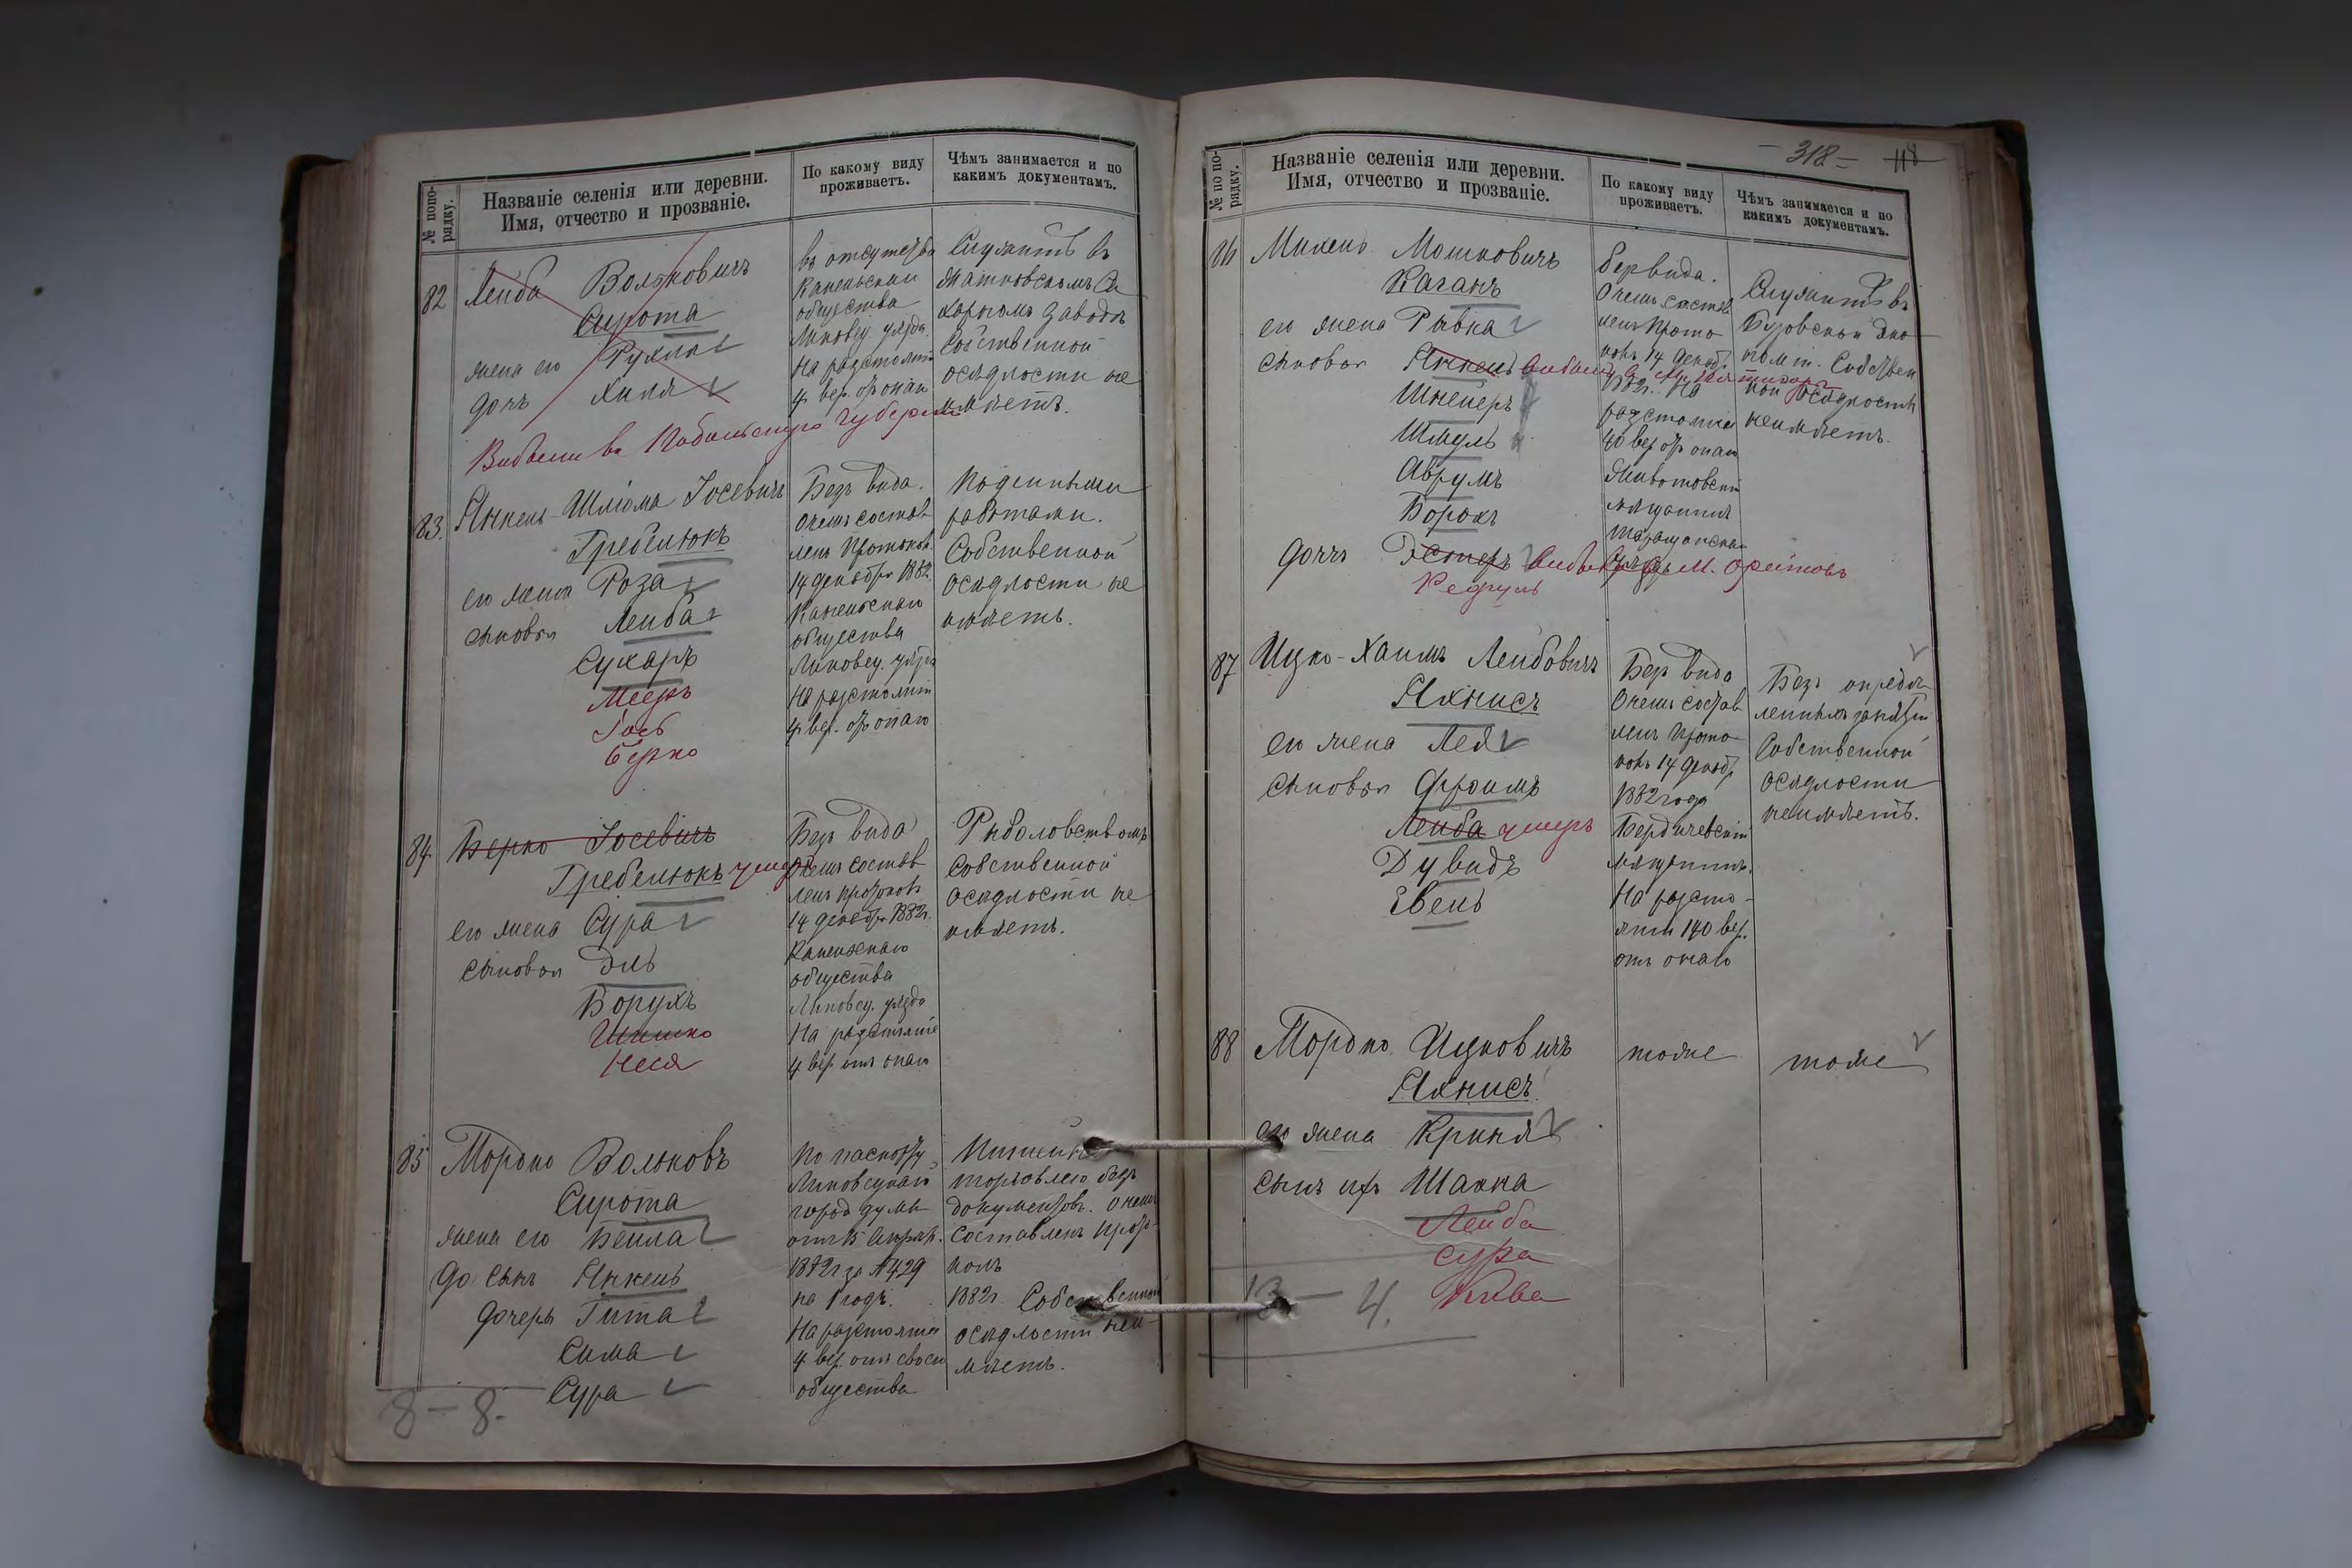 № попо-
рядку.
Названіе селенія или деревни.
Имя, отчество и прозваніе.
По какому виду
проживаетъ.
Чѣмъ занимается и по
какимъ документамъ.
82
Лейба Волъковичъ
Сирота
жена его Рухля
дочь Хиля
Каневскаго
общества
Липовец. уѣзда
На разстояніи
4 вер. отъ онаго
Служитъ въ
харномъ заводѣ
Собственной
осѣдлости не
имѣетъ.
губернію
83.
Янкель-Шлiома Іосевичъ
Гребелюкъ
его жена Роза
сыновья Лейба
Сухаръ
Мееръ
Іось
Берко
Безъ вида.
О чемъ состав
ленъ протоколъ
14 декабря 1882.
общества
Липовец. уѣзда
На разстояніи
4 вер. отъ онаго
Поденными
работами.
Собственной
осѣдлости не
имѣетъ.
84
Берко Іосевичъ
Гребелюкъ умеръ
его жена Сура
сыновья Эль
Борухъ
Шишко
Неся
Безъ вида
О чемъ состав
ленъ протоколъ
14 декабря 1882г.
общества
Липовец. уѣзда
На разстояніе
4 вер отъ онаго
Рыболовствомъ
Собственной
осѣдлости не
имѣетъ.
85
Мордко Вольковъ
Сирота
жена его Бейла
сынъ Янкель
дочеръ Гита
Сима
Сура
По паспорту
Липовецкаго
город думы
отъ 15 апрѣл.
1882 г за № 429
на 1 годъ.
На разстояніи
4 вер. отъ своего
общества
торговлею безъ
документовъ. О чемъ
составленъ прот-
колъ
1882г. Собственной
осѣдлости неи-
мѣетъ.
8 – 8.
– 318 – 118
№ по по-
рядку.
Названіе селенія или деревни.
Имя, отчество и прозваніе.
По какому виду
проживаетъ.
Чѣмъ занимается и по
какимъ документамъ.
86
Михель Мошковичъ
Каганъ
его жена Рывка
сыновья Янкель
Шнееръ
Шмуль
Аврумъ
Борохъ
дочь Эстеръ
Без вида.
О чемъ состав
ленъ прото
колъ 14 декабр.
1882г. На
разстояніи
40 вер отъ онаго
мѣщанинъ
Служитъ въ
номіи. Собствен
ной осѣдлости
неимѣетъ.
87
Ицко-Хаимъ Лейбовичъ
Яхнисъ
его жена Лея
сыновья Фроимъ
Лейба умеръ
Дувидъ
Евель
Безъ вида
О чемъ состав
ленъ прото
колъ 14 декабр
1882 года
Бердичевскій
мѣщанинъ.
На разсто-
яніи 140 вер.
отъ онаго
Безъ опредѣ-
ленныхъ занятій
Собственной
осѣдлости
неимѣетъ.
88
Мордко Ицковичъ
Яхнисъ
его жена Крыня
сынъ ихъ Шахна
Лейба
Сура
Кива
тоже
тоже
13 – 4.